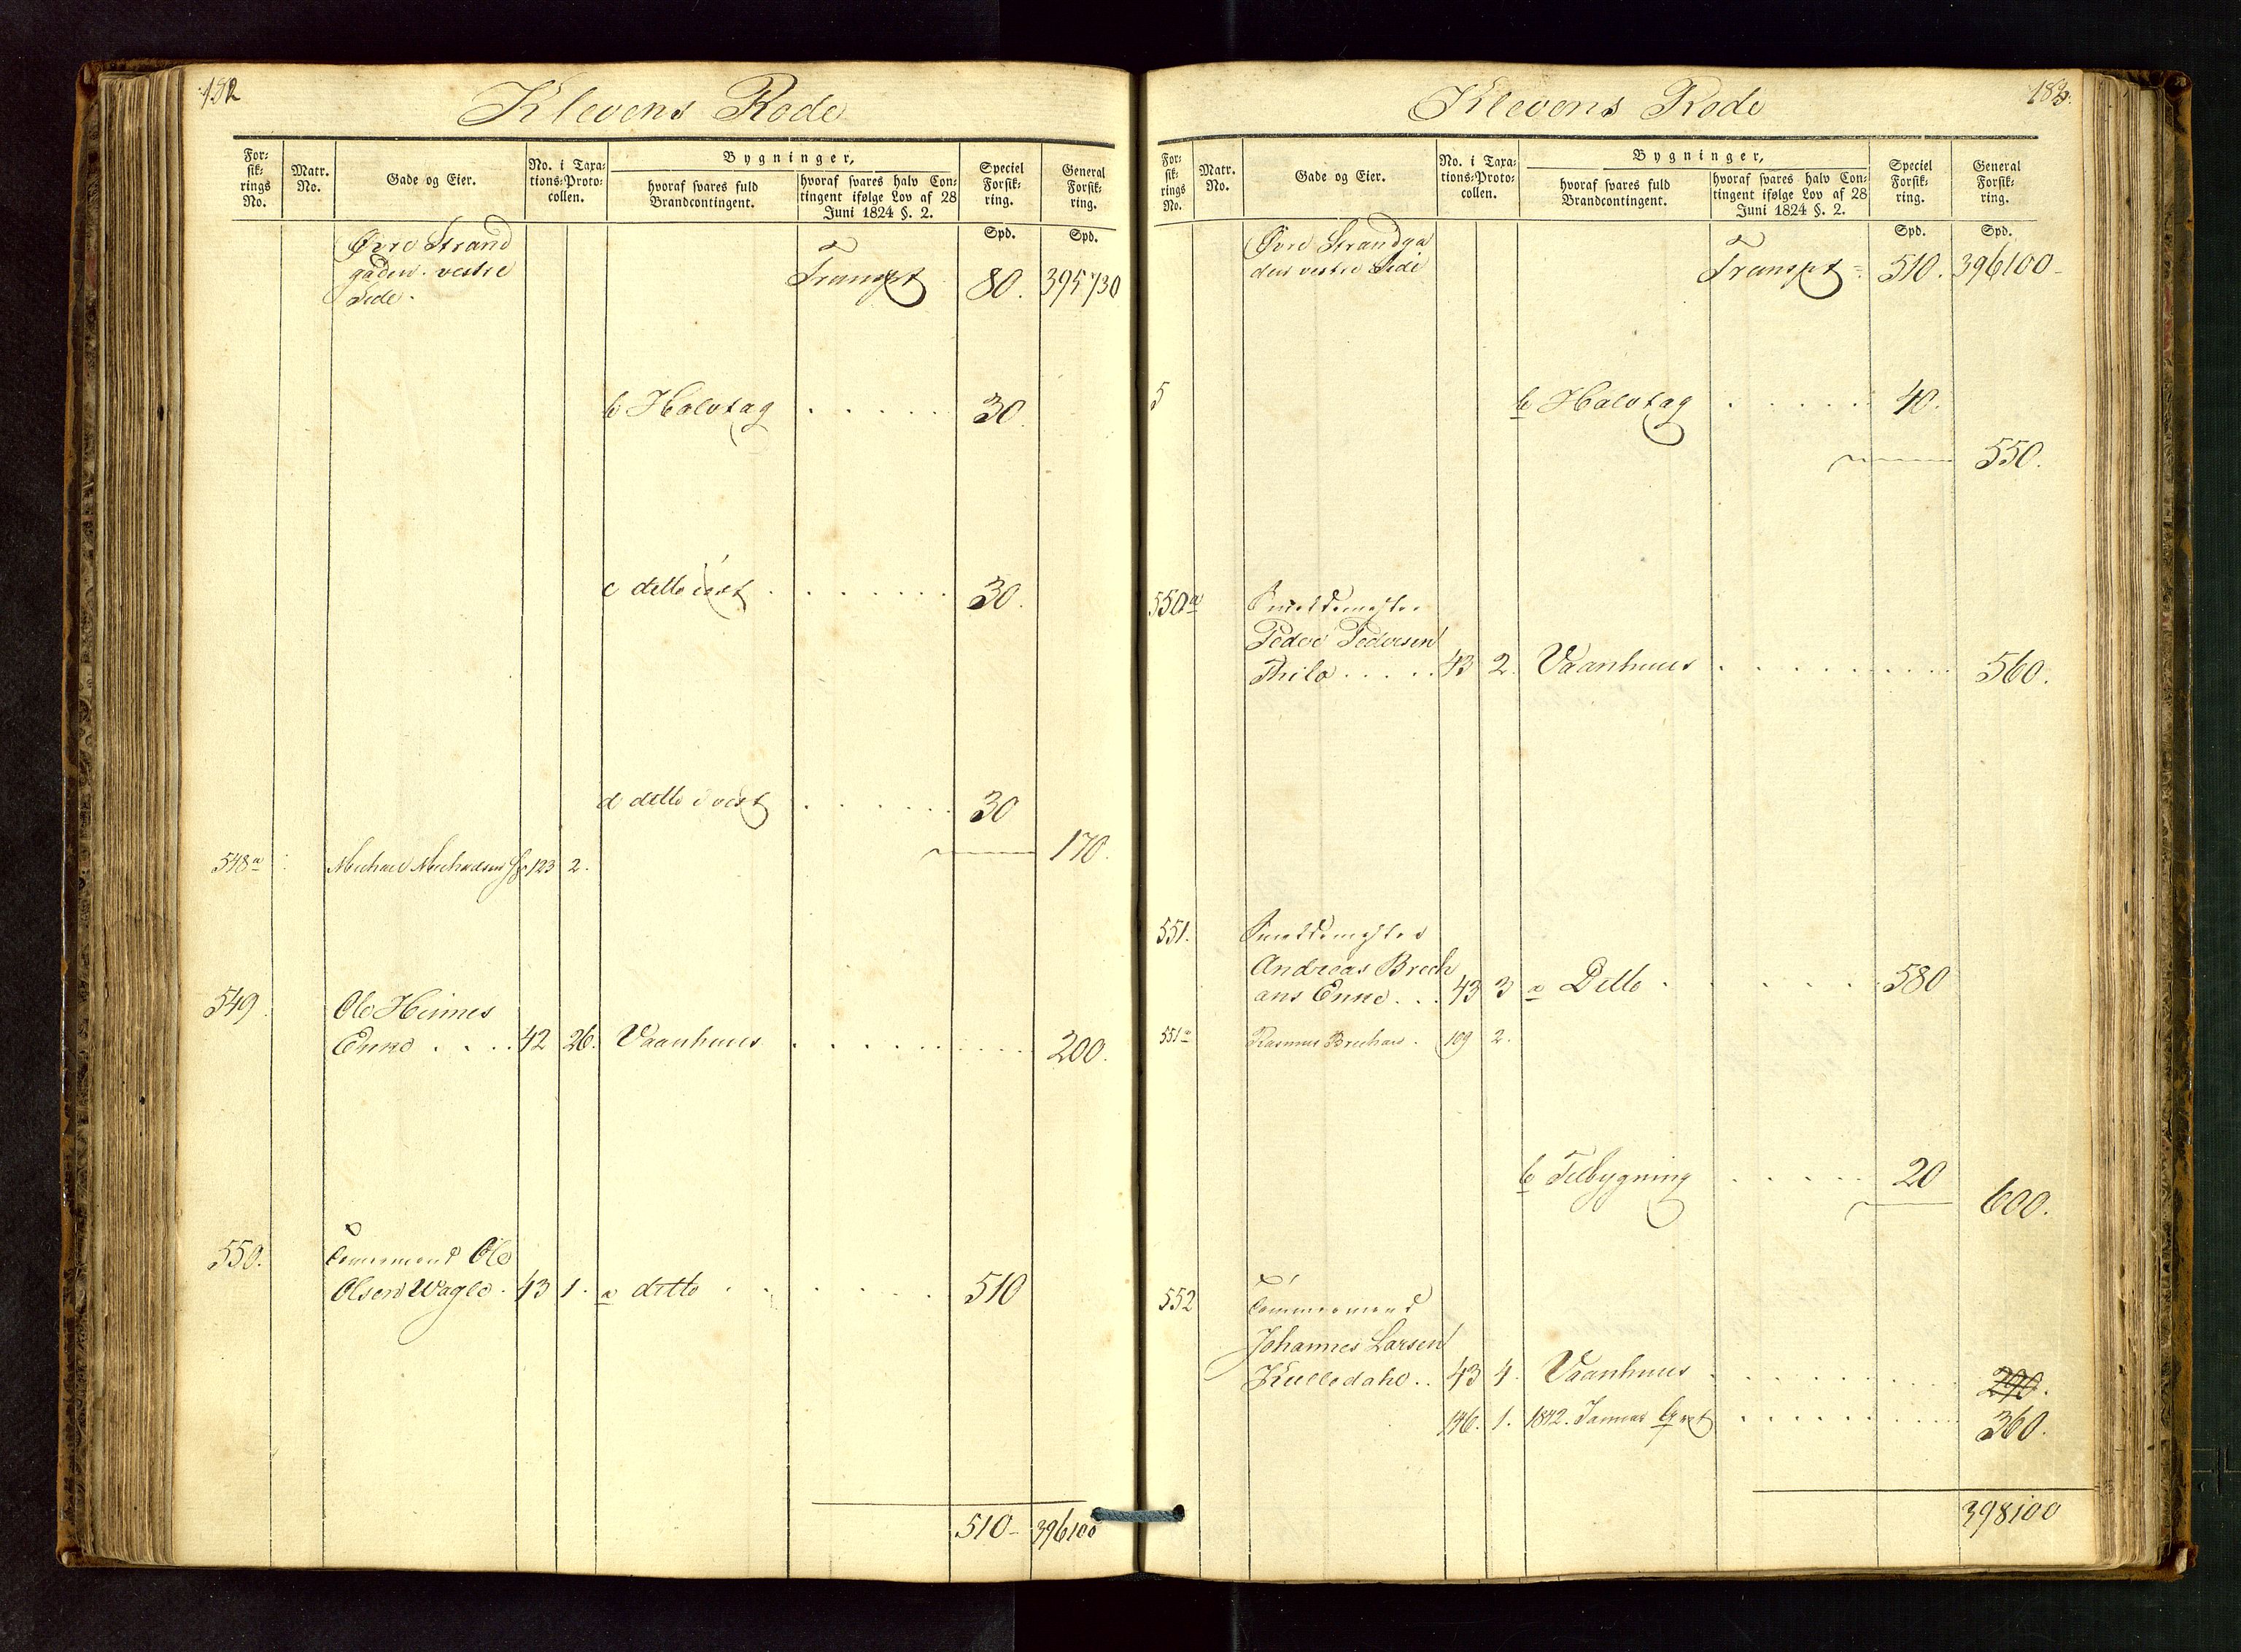 182
Klevens Rode
For=
sik=
rings
No.
Matr.
No.
Gade og Eier.
No. i Taxa=
tions=Proto=
collen.
Bygninger,
hvoraf svares fuld
Brandcontingent.
hvoraf svares halv Con=
tingent ifølge Lov af 28
Juni 1824 §. 2.
Speciel
Forsik=
ring.
General
Forsik=
ring.
Spd. Spd.
Øvre Strand
gaden vestre
Side.
Transpt 80. 395730
b Halvtag . . . . . 30.
c ditto i øst . . . . . . . 30.
d ditto i vest . . . . . 30
170.
548a Michael Michaelsen 123 2.
549. Ole Hinnes
Enke . . . . 42 26. Vaanhuus . . . . . . . . . 200.
550. Tømmermand Ole
Olsen Wagle . 43 1. a ditto . . . . . . . 510
510 - 396100
183.
Klevens Rode
For=
sik=
rings
No.
Matr.
No.
Gade og Eier.
No. i Taxa=
tions=Proto=
collen.
Bygninger,
hvoraf svares fuld
Brandcontingent.
hvoraf svares halv Con=
tingent ifølge Lov af 28
Juni 1824 §. 2.
Speciel
Forsik=
ring.
General
Forsik=
ring.
Spd. Spd.
Øvre Strandga
den vestre Side
Transpt = 510. 396100 -
5 b Halvtag . . . . . 40.
550.
550a Smedemester
Peder Pedersen
Thilo . . . . . 43 2. Vaanhuus . . . . . . . . . 560.
551. Smedemester
Andreas Brech
ans Enke . . . 43 3 a Ditto . . . . . 580
551a Rasmus Brechan . 109 2.
b Tilbygning . . . . . 20
600.
552 Tømmermand
Johannes Larsen
Kulledahl . . 43 4. Vaanhuus . . . . . . . . . 290.
146. 1. 1842. Januar . . . . . . . . . 360.
398100